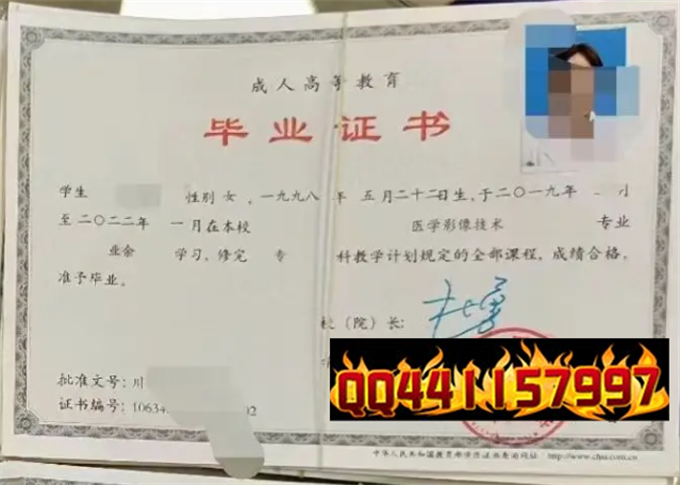 成人高等教育
毕业证书
学生 性别 女，一九九八 年 五 月二十二日生，于二〇一九年
至 二〇二二年 一 月在本校 医学影像技术 专业
业余 学习，修完 专 科教学计划规定的全部课程，成绩合格，
准予毕业。
（院）长：
QQ441157997
批准文号：川
证书编号：10634 02
中华人民共和国教育部学历证书查询网址 http://www.chsi.com.cn